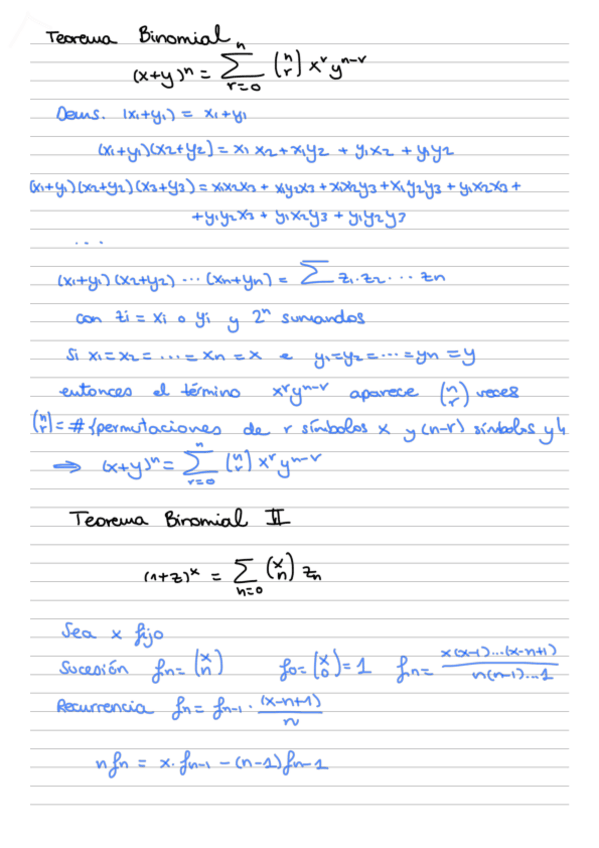 Teorema Binomial
(x+y)ⁿ = ∑_{r=0}^{n} (n r) xʳ yⁿ⁻ʳ
Dems. (x₁+y₁) = x₁+y₁
(x₁+y₁)(x₂+y₂) = x₁x₂+x₁y₂ + y₁x₂ + y₁y₂
(x₁+y₁)(x₂+y₂)(x₃+y₃) = x₁x₂x₃ + x₁y₂x₃ + x₁x₂y₃ + x₁y₂y₃ + y₁x₂x₃ +
+ y₁y₂x₃ + y₁x₂y₃ + y₁y₂y₃
...
(x₁+y₁)(x₂+y₂) ... (xₙ+yₙ) = ∑ z₁·z₂· ... zₙ
con zi = xi o yi y 2ⁿ sumandos
Si x₁=x₂= ... = xₙ = x e y₁=y₂= ... = yₙ = y
entonces el término xʳyⁿ⁻ʳ aparece (n r) veces
(n r) = # {permutaciones de r símbolos x y (n-r) símbolos y}
⇒ (x+y)ⁿ = ∑_{r=0}^{n} (n r) xʳ yⁿ⁻ʳ
Teorema Binomial II
(1+z)ˣ = ∑_{n=0} (x n) zₙ
Sea x fijo
Sucesión fₙ = (x n) f₀ = (x 0) = 1 fₙ = x(x-1)...(x-n+1) / n(n-1)...1
Recurrencia fₙ = fₙ₋₁ · (x-n+1) / n
n fₙ = x · fₙ₋₁ - (n-1) fₙ₋₁